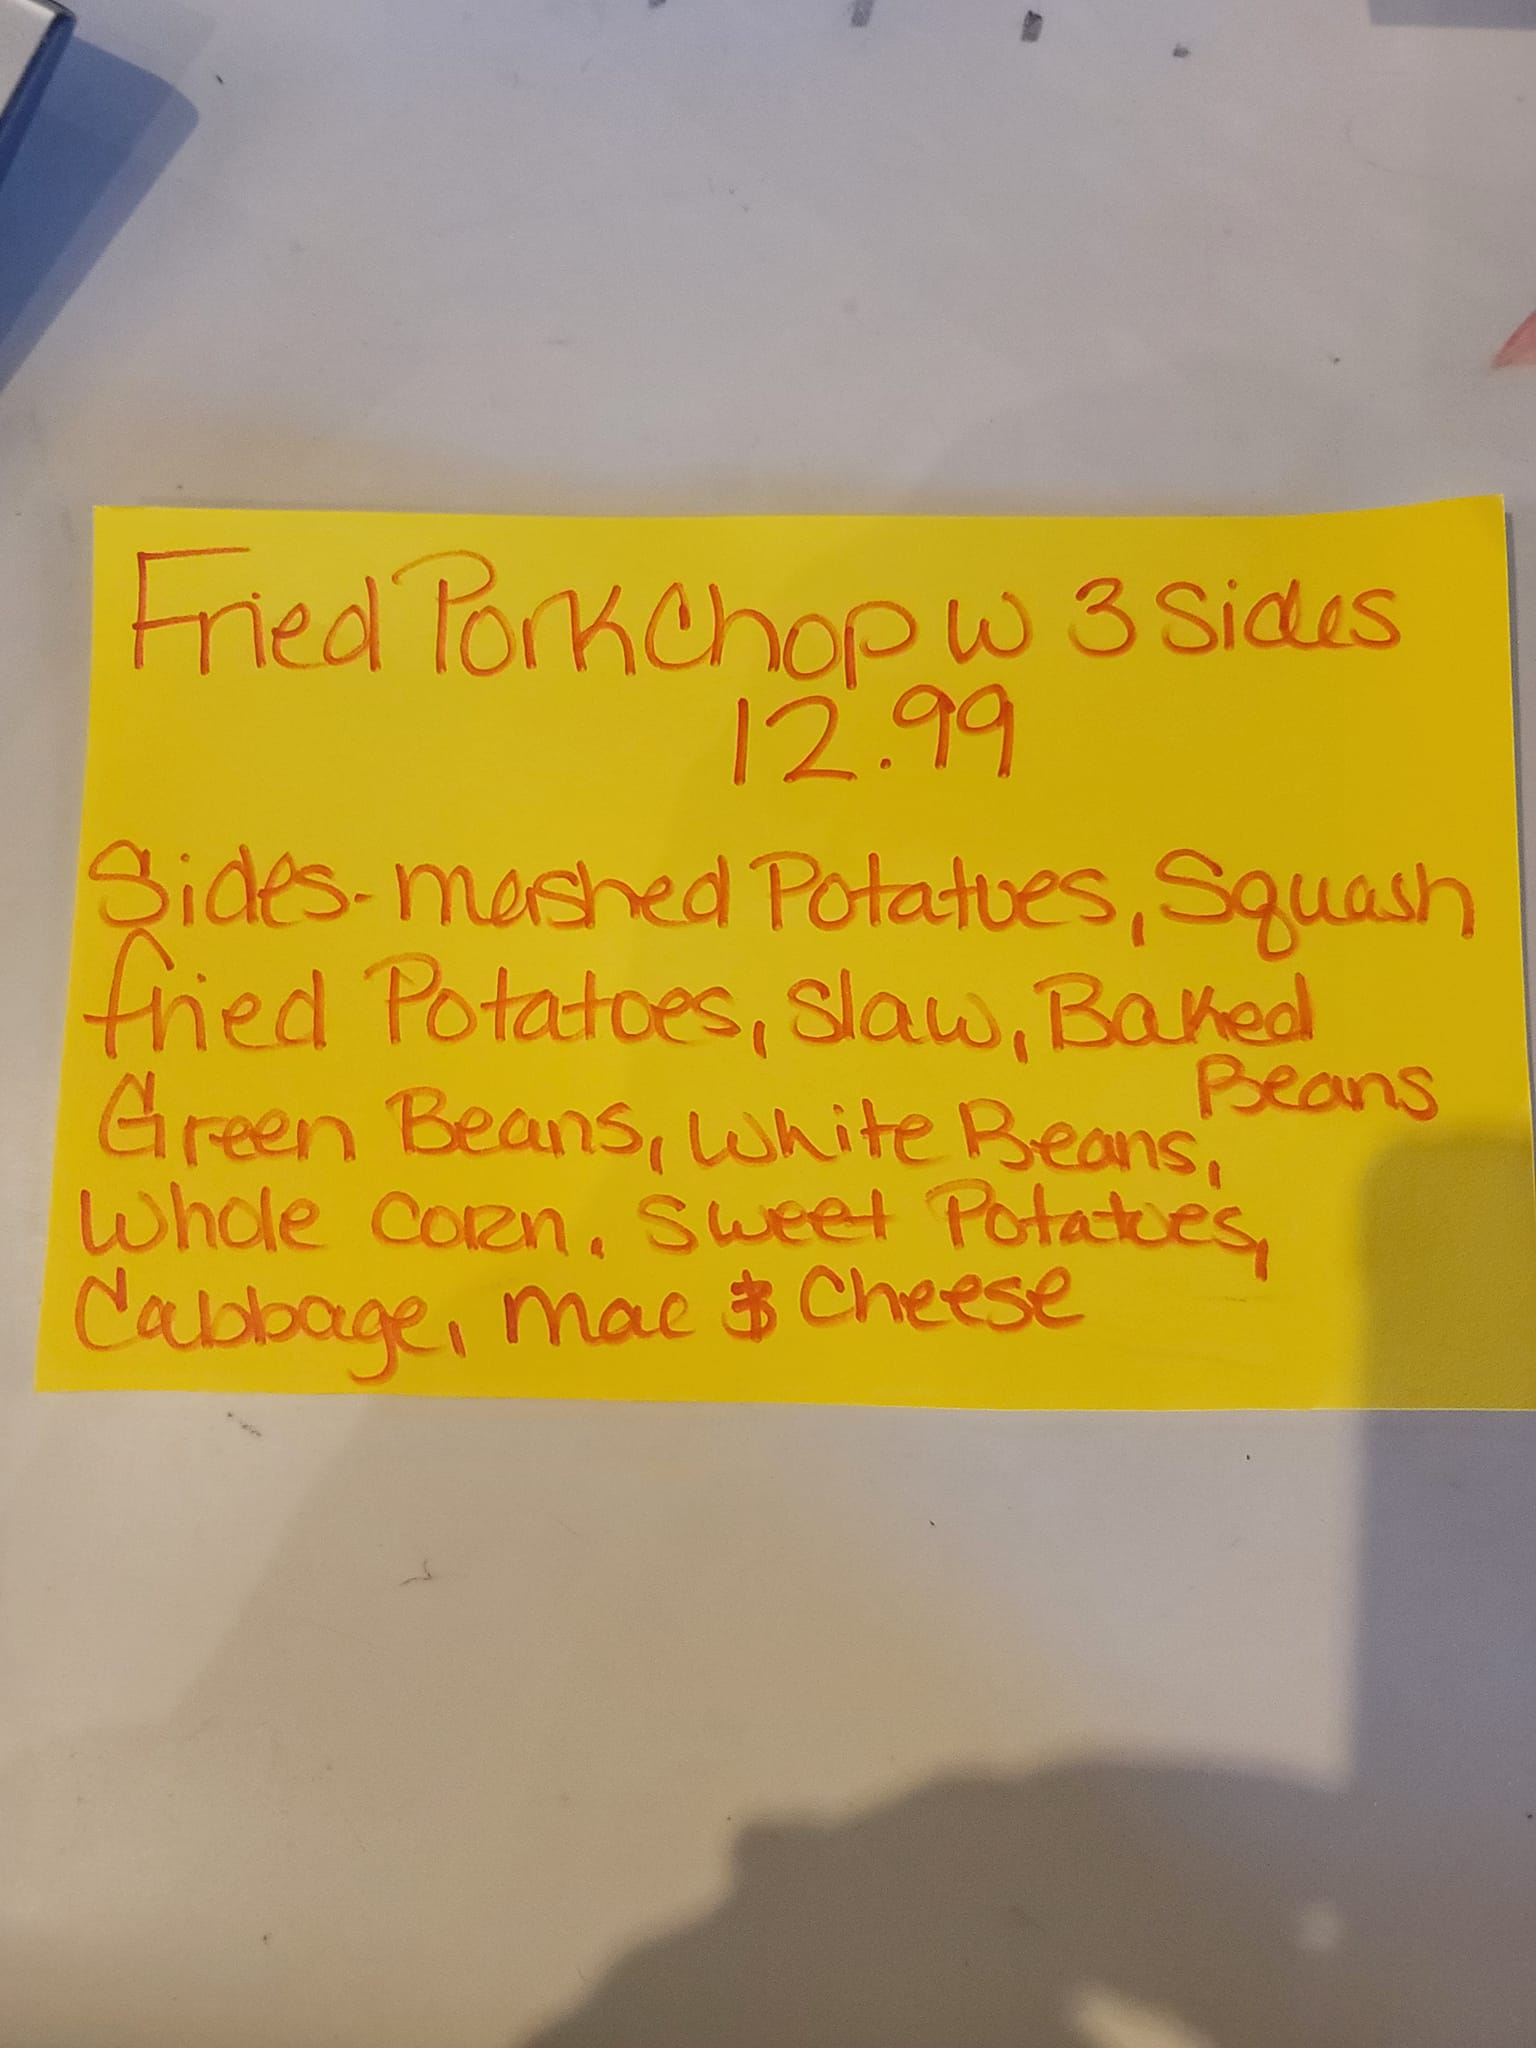 Fried Pork Chop w 3 Sides
12.99
Sides-mashed Potatoes, Squash
fried Potatoes, slaw, Baked
Beans
Green Beans, White Beans,
Whole corn, Sweet Potatoes,
Cabbage, mac & Cheese